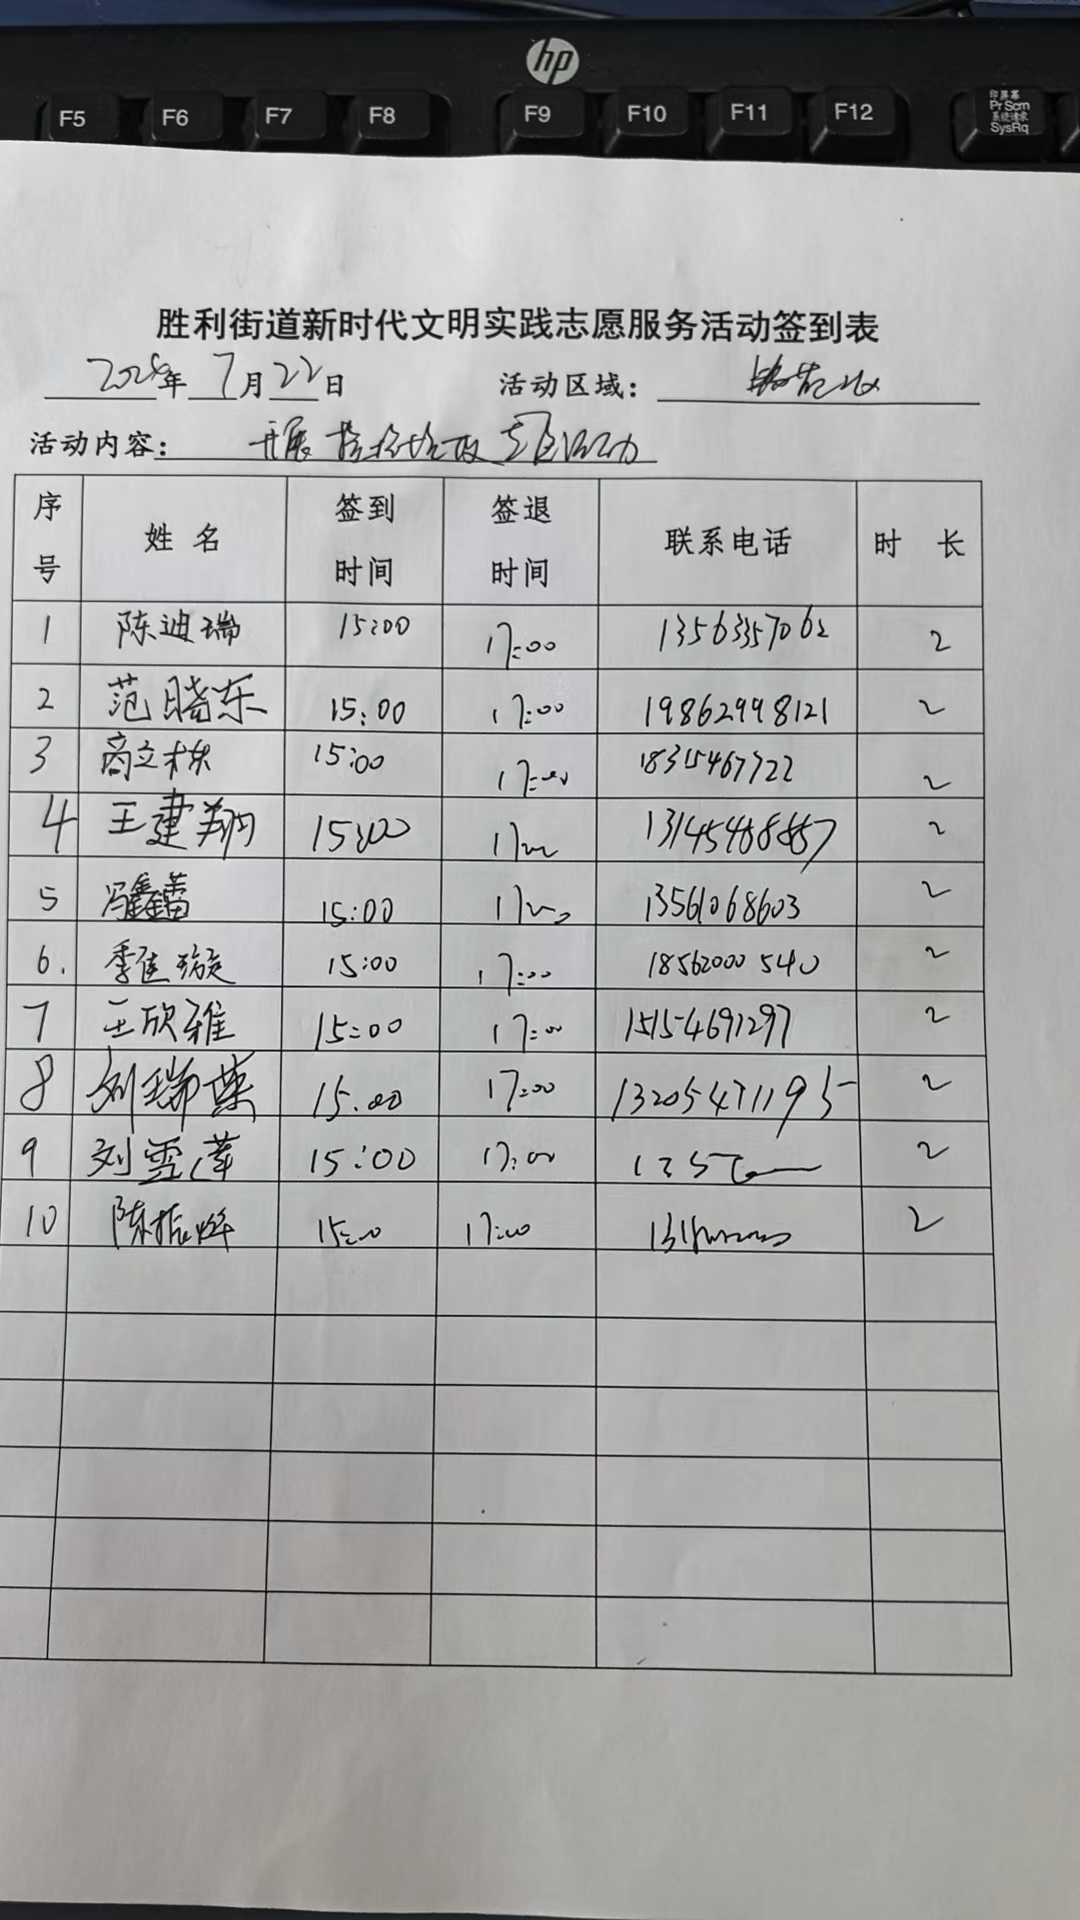 hp
F5 F6 F7 F8 F9 F10 F11 F12 印屏幕 PrScn 系统请求 SysRq
胜利街道新时代文明实践志愿服务活动签到表
年 7月22日 活动区域：
活动内容： 开展
序号 姓名 签到时间 签退时间 联系电话 时长
1 陈迪瑞 15:00 17:00 13563357062 2
2 范晓东 15:00 17:00 19862998121 2
3 商立栋 15:00 17:00 18315467722 2
4 王建翔 15:00 2
5 冯鑫蕾 15:00 13561068603 2
6. 季佳璇 15:00 17:00 18562000540 2
7 王欣雅 15:00 17:00 15154691297 2
8 刘瑞 15:00 17:00 13205471195 2
9 刘雪莲 15:00 17:00 2
10 陈振烨 15:00 17:00 2